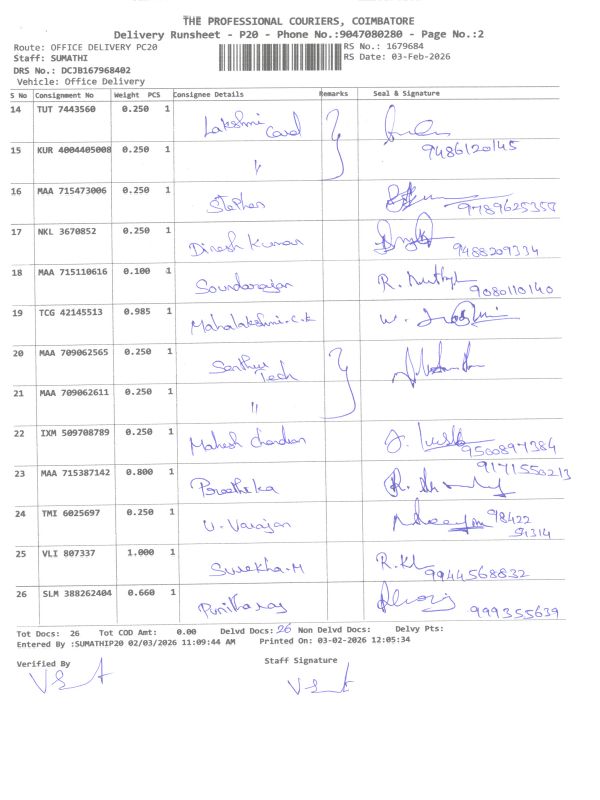 THE PROFESSIONAL COURIERS, COIMBATORE
Delivery Runsheet - P20 - Phone No.:9047080280 - Page No.:2
Route: OFFICE DELIVERY PC20 RS No.: 1679684
Staff: SUMATHI RS Date: 03-Feb-2026
DRS No.: DCJB167968402
Vehicle: Office Delivery
S No Consignment No Weight PCS Consignee Details Remarks Seal & Signature
14 TUT 7443560 0.250 1 Lakshmi Card
15 KUR 4004405008 0.250 1 " 9486120145
16 MAA 715473006 0.250 1 Stephen 9789625357
17 NKL 3670852 0.250 1 Dinesh Kumar 9488209334
18 MAA 715110616 0.100 1 Soundarajan 9080110140
19 TCG 42145513 0.985 1 Mahalakshmi.C.K
20 MAA 709062565 0.250 1 Tech
21 MAA 709062611 0.250 1 "
22 IXM 509708789 0.250 1 Mahesh Chandran 9500897384
23 MAA 715387142 0.800 1 9171550213
24 TMI 6025697 0.250 1 98422
91314
25 VLI 807337 1.000 1 Surekha-M 9944568832
26 SLM 388262404 0.660 1 Punitharaj 999355639
Tot Docs: 26 Tot COD Amt: 0.00 Delvd Docs: 26 Non Delvd Docs: Delvy Pts:
Entered By :SUMATHIP20 02/03/2026 11:09:44 AM Printed On: 03-02-2026 12:05:34
Verified By Staff Signature